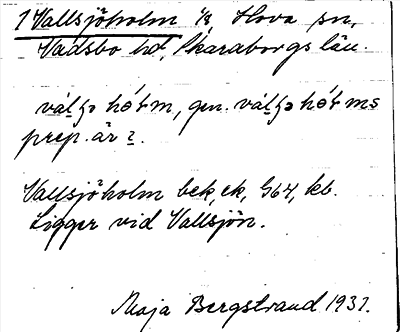 1 Vallsjöholm 1/8 Hova sn,
Vadsbo hd, Skaraborgs län.
prep. är 2.
Vallsjöholm bek, ek, G64, kb.
Ligger vid Vallsjön.
Maja Bergstrand 1931.